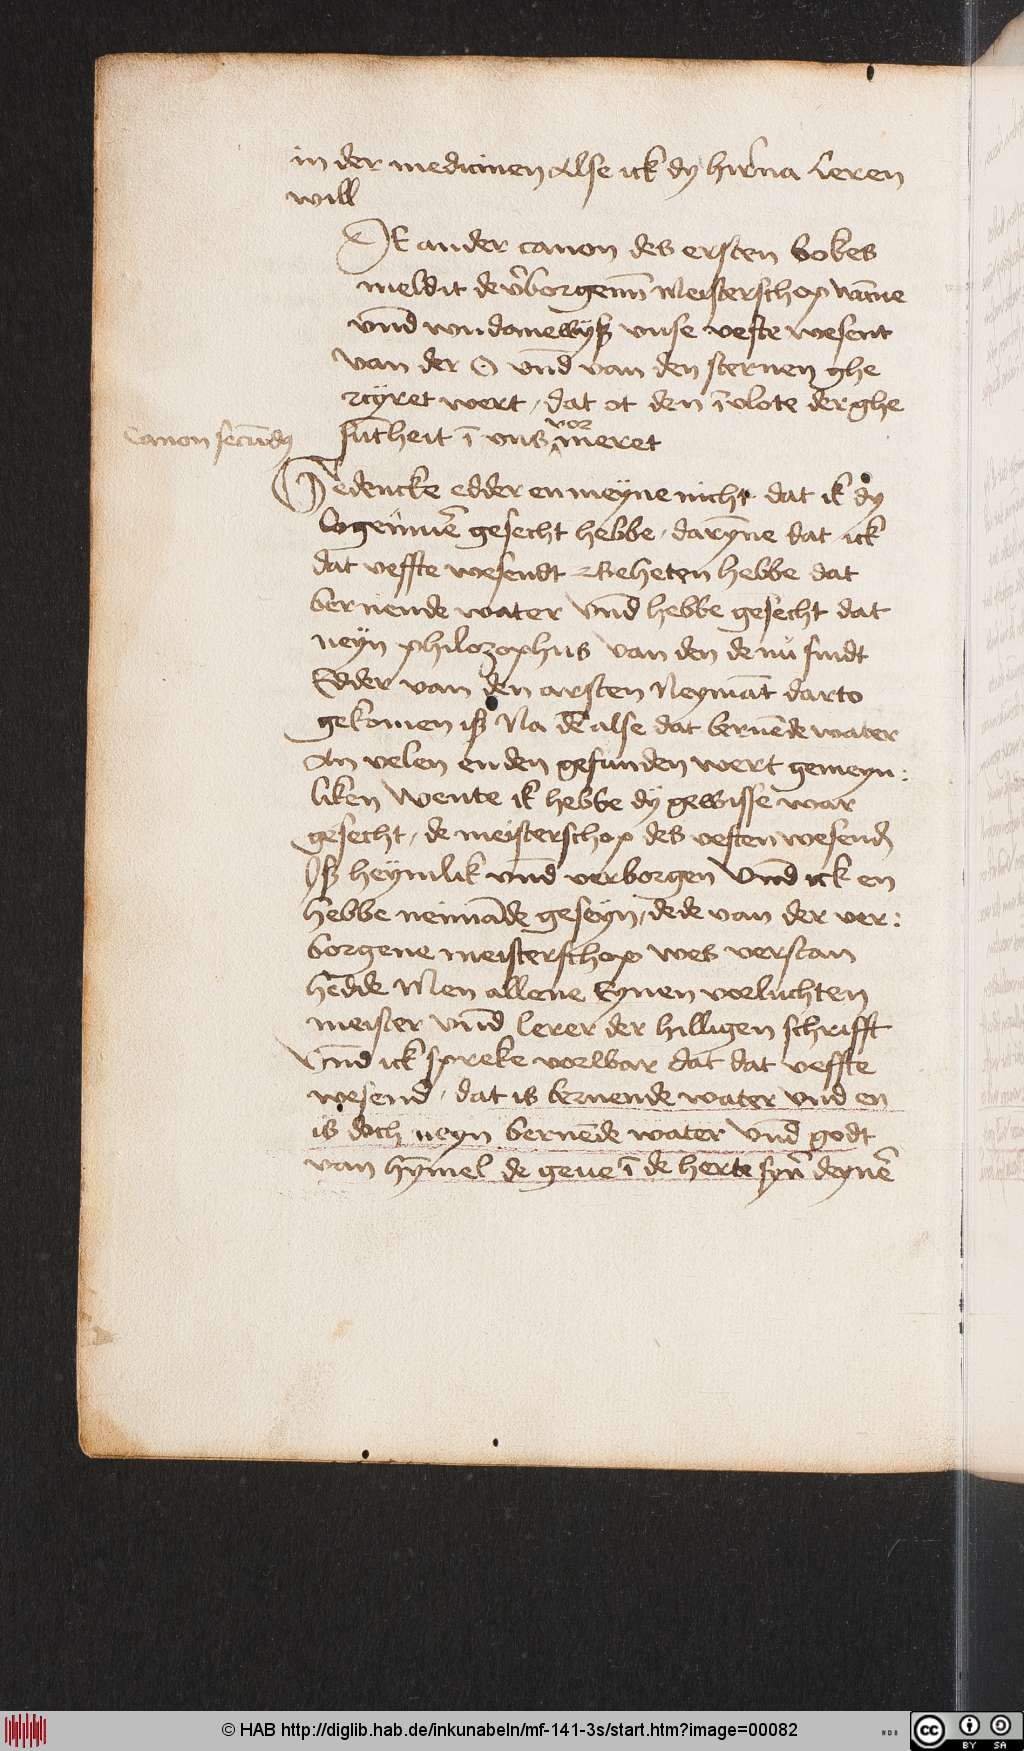 in der medicinen Alse ick dy hirna leren
will
DE ander canon des ersten bokes
meldit de v̄borgenn̄ Meisterschop wāne
vnd̄ wu daneẃyß vnse vefte wesent
van der ☉ vnd̄ van den sternen ghe
zcyret wert, dat ot den ī vlote der ghe
Canon secūdꝯ
sūtheit ī vns vor meret
Gedencke edder en meyne nicht dat ik dy
logenn̄e gesecht hebbe, darȳne dat ick
dat veffte wesendt Geheten hebbe dat
bernende water vnd̄ hebbe gesecht dat
neyn philozophus van den de nu sindt
Edder van den arsten Neymāt darto
gekomen iß Na dē alse dat bernēde water
An velen enden gefunden wert gemeyn:
liken Wente ik hebbe dy gewisse war
gesecht, de meisterschop des veften wesend
Iß heymlik vnd̄ verborgen Vnd̄ ick en
hebbe neimāde geseyn, dede van der ver:
borgene meisterschop wes verstan
hedde Men allene Eynen vorluchten
meister vnd̄ lerer der hilligen schrifft
Vnd̄ ick spreke vorwar dat dat veffte
wesend, dat is bernende water vnd en
is doch neyn bernēde water vnd̄ godt
van hȳmel de geue ī de herte syn̄ deynē
© HAB http://diglib.hab.de/inkunabeln/mf-141-3s/start.htm?image=00082
cc BY SA